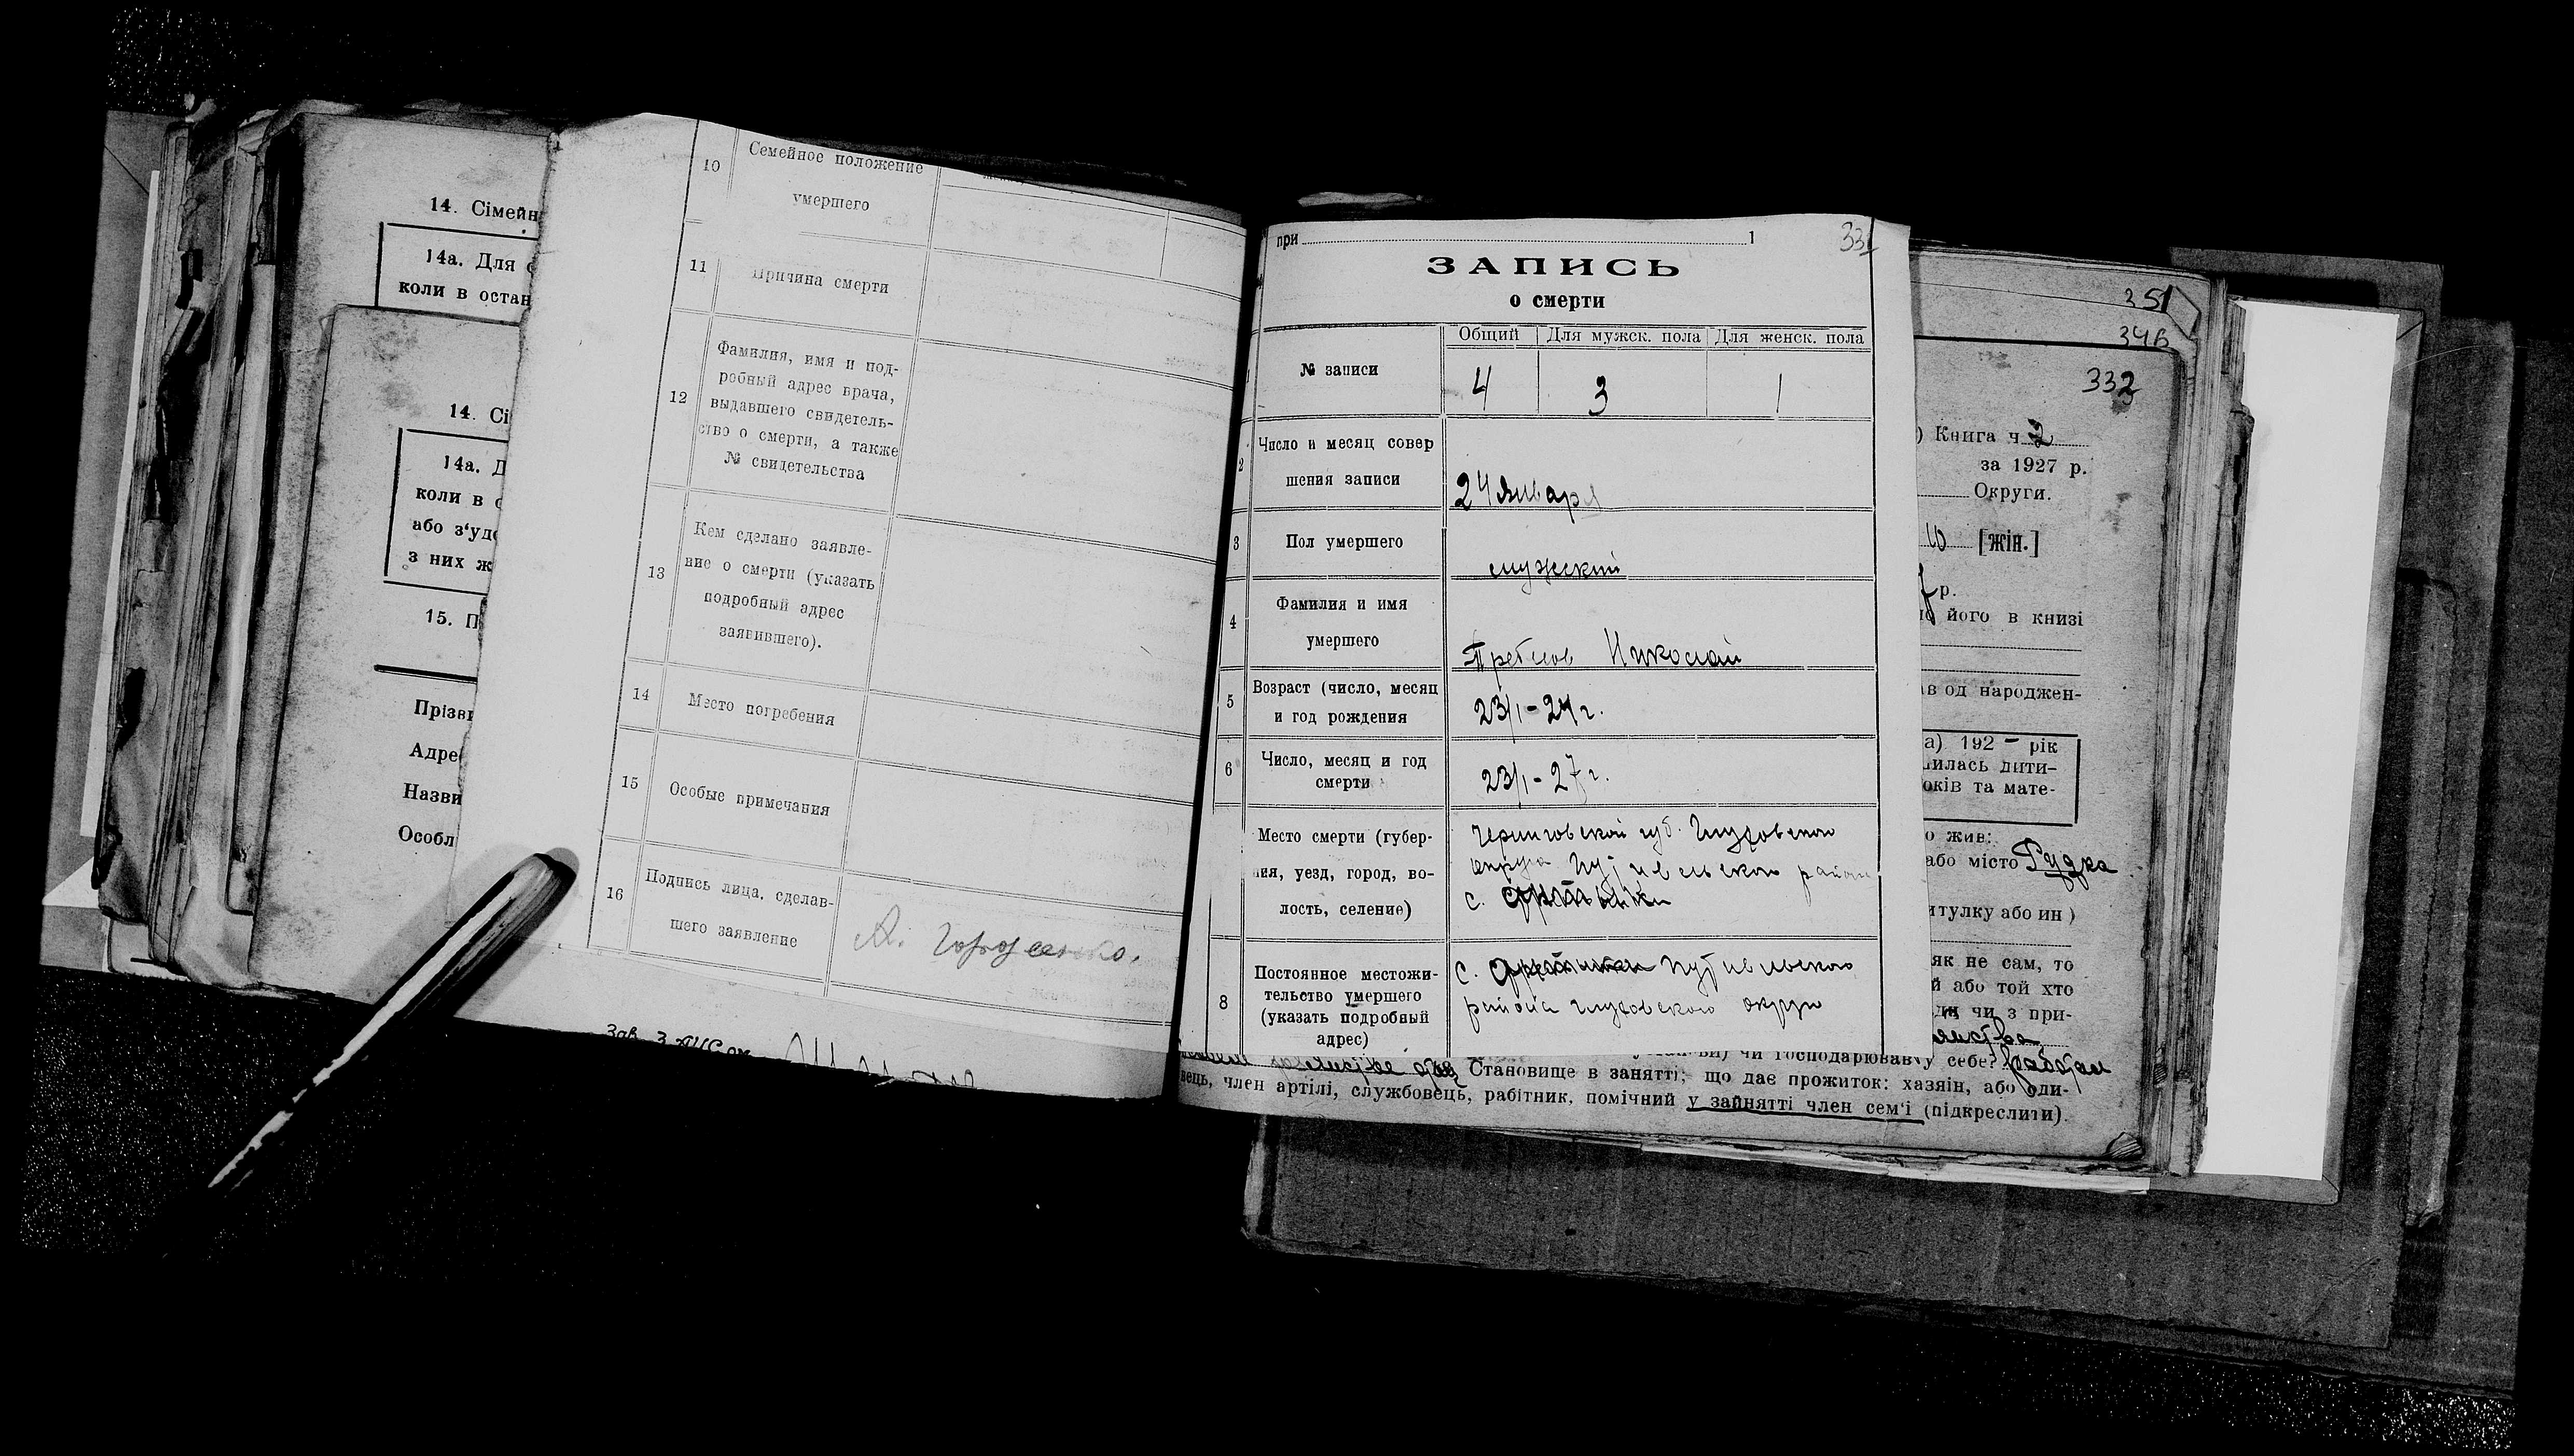 14. Сімейн
14а. Для
коли в остан
14. Сі
14а. Д
коли в
або з'удо
з них ж
15. П
Прізви
Адре
Назви
Особл
10 Семейное положение
умершего
11 Причина смерти
12 Фамилия, имя и под-
робный адрес врача,
выдавшего свидетель-
ство о смерти, а также
№ свидетельства
13 Кем сделано заявле-
ние о смерти (указать
подробный адрес
заявившего).
14 Место погребения
15 Особые примечания
16 Подпись лица, сделав-
шего заявление
А.
Зав.
при 1
ЗАПИСЬ
о смерти
Общий Для мужск. пола Для женск. пола
№ записи 4 3 1
2 Число и месяц совер
шения записи
24 января
3 Пол умершего
мужской
4 Фамилия и имя
умершего
Николай
5 Возраст (число, месяц
и год рождения
23/1-24 г.
6 Число, месяц и год
смерти
23/1-27 г.
Место смерти (губер-
ния, уезд, город, во-
лость, селение)
Черниговской губ. Глуховского
округа Путивельского район
с.
8 Постоянное местожи-
тельство умершего
(указать подробный
адрес)
с. Путивльского
района Глуховского округи
351
346
332
) Книга ч 2
за 1927 р.
Округи.
10 [жін.]
7 р.
його в книзі
ав од народжен-
а) 192 – рік
илась дити-
оків та мате-
о жив:
або місто Рудка
итулку або ин)
як не сам, то
й або той хто
ди чи з при-
ви) чи господарював у себе?
Становище в занятті; що дає прожиток: хазяін, або оди-
вець, член артілі, службовець, рабітник, помічний у зайнятті член сем'і (підкреслити).